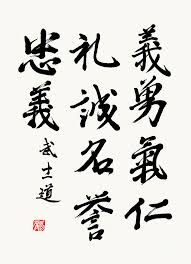 義勇氣仁
礼誠名誉
忠義
武士道